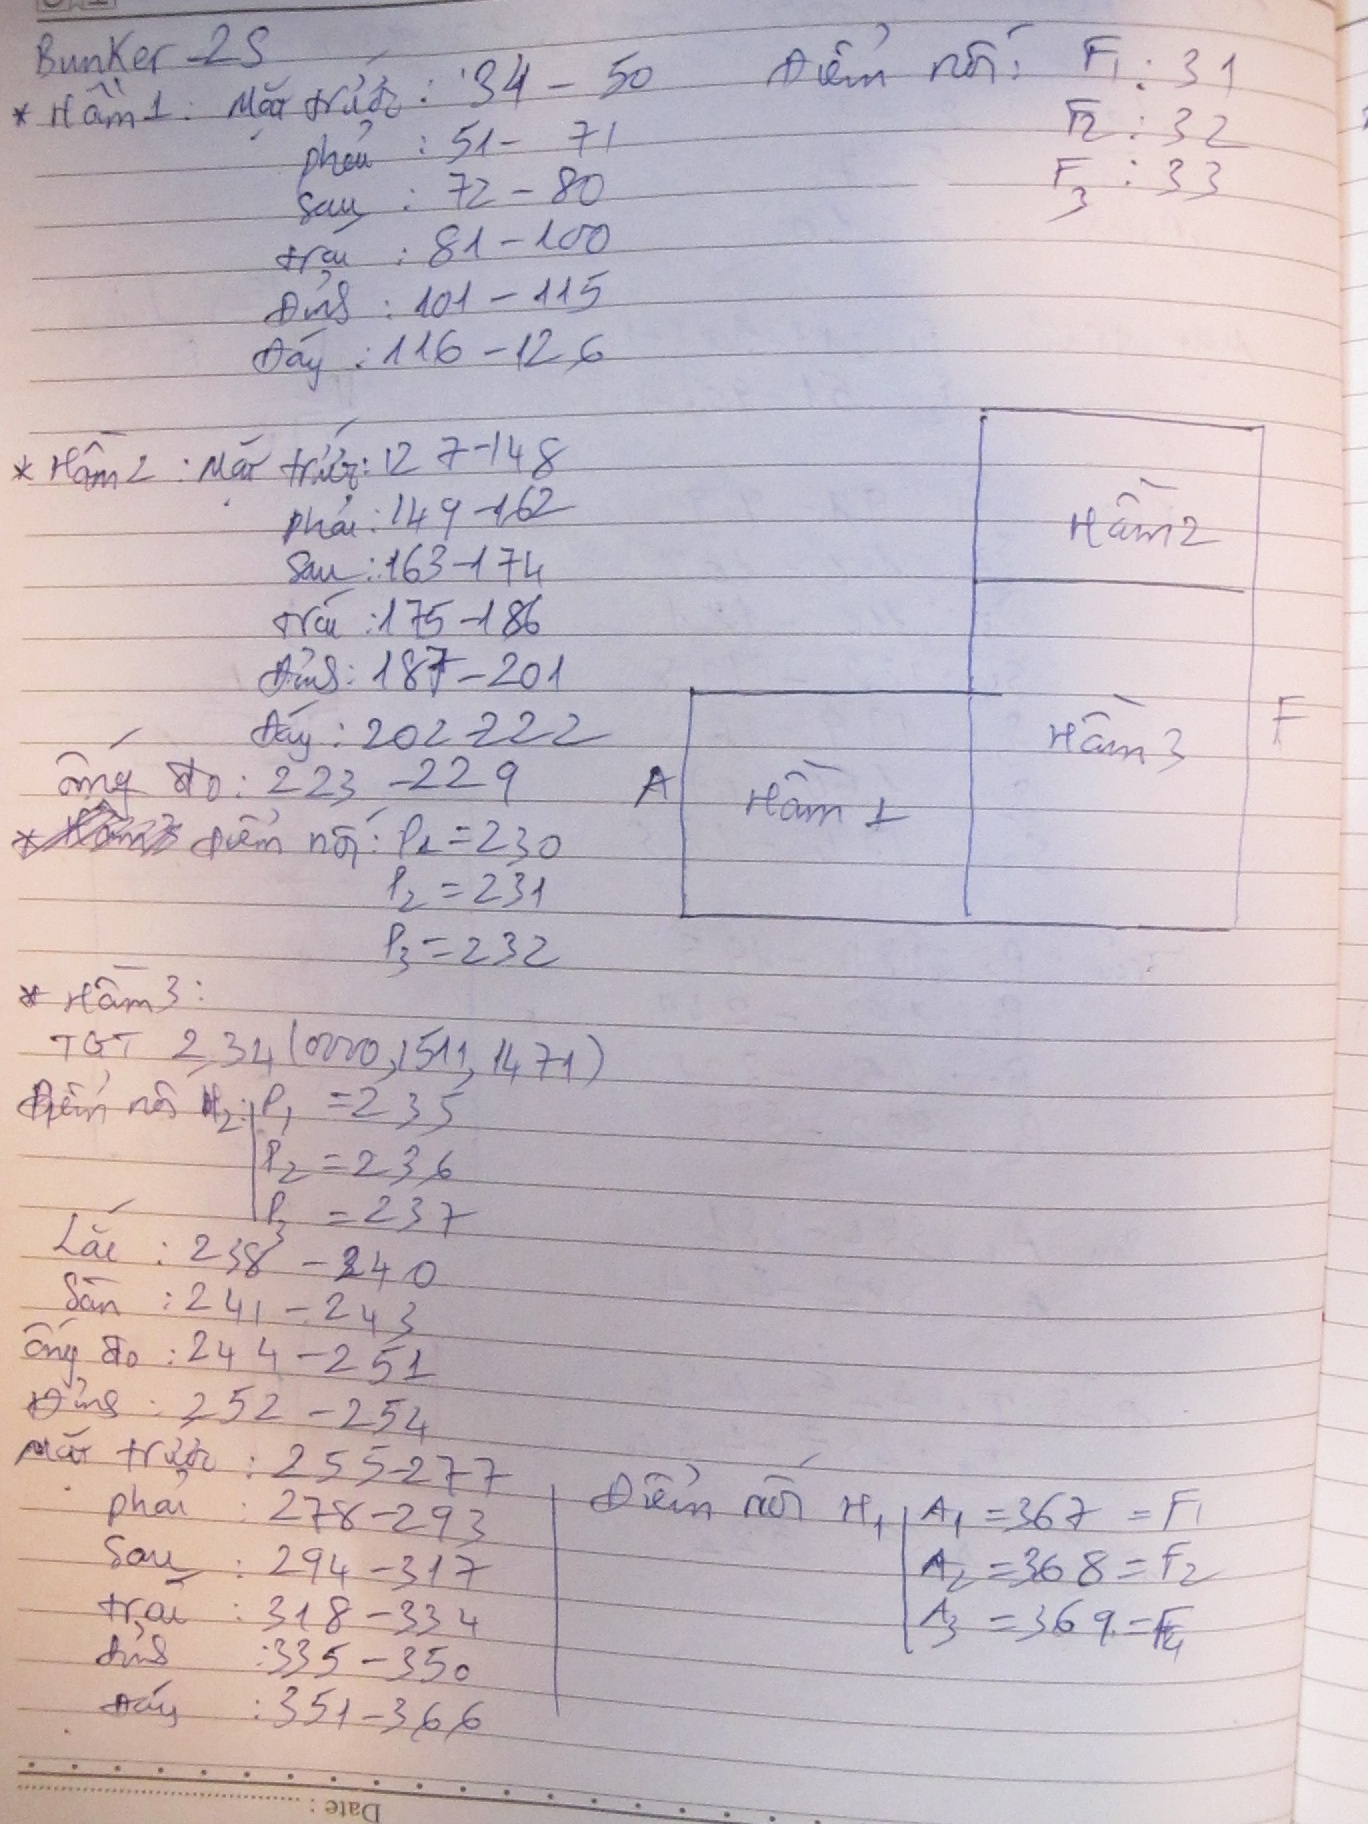 Bunker-2S
* Hầm 1: Mặt trước: 34 - 50
phải: 51 - 71
Sau: 72 - 80
trái: 81 - 100
Đỉnh: 101 - 115
Đáy: 116 - 126
Điểm nối: F1: 31
F2: 32
F3: 33
* Hầm 2: Mặt trước: 127-148
phải: 149-162
Sau: 163-174
trái: 175-186
Đỉnh: 187-201
Đáy: 202-222
ống đo: 223-229
* điểm nối: P1 = 230
P2 = 231
P3 = 232
Hầm 2
Hầm 3
F
A
Hầm 1
* Hầm 3:
TGT 234 (0000, 1511, 1471)
Điểm nối H2: P1 = 235
P2 = 236
P3 = 237
Lắc: 238 - 240
Sàn: 241 - 243
ống đo: 244 - 251
Đỉnh: 252 - 254
Mặt trước: 255-277
phải: 278-293
Sau: 294-317
trái: 318-334
đỉnh: 335-350
Đáy: 351-366
Điểm nối H1 A1 = 367 = F1
A2 = 368 = F2
A3 = 369 = F4
Date: